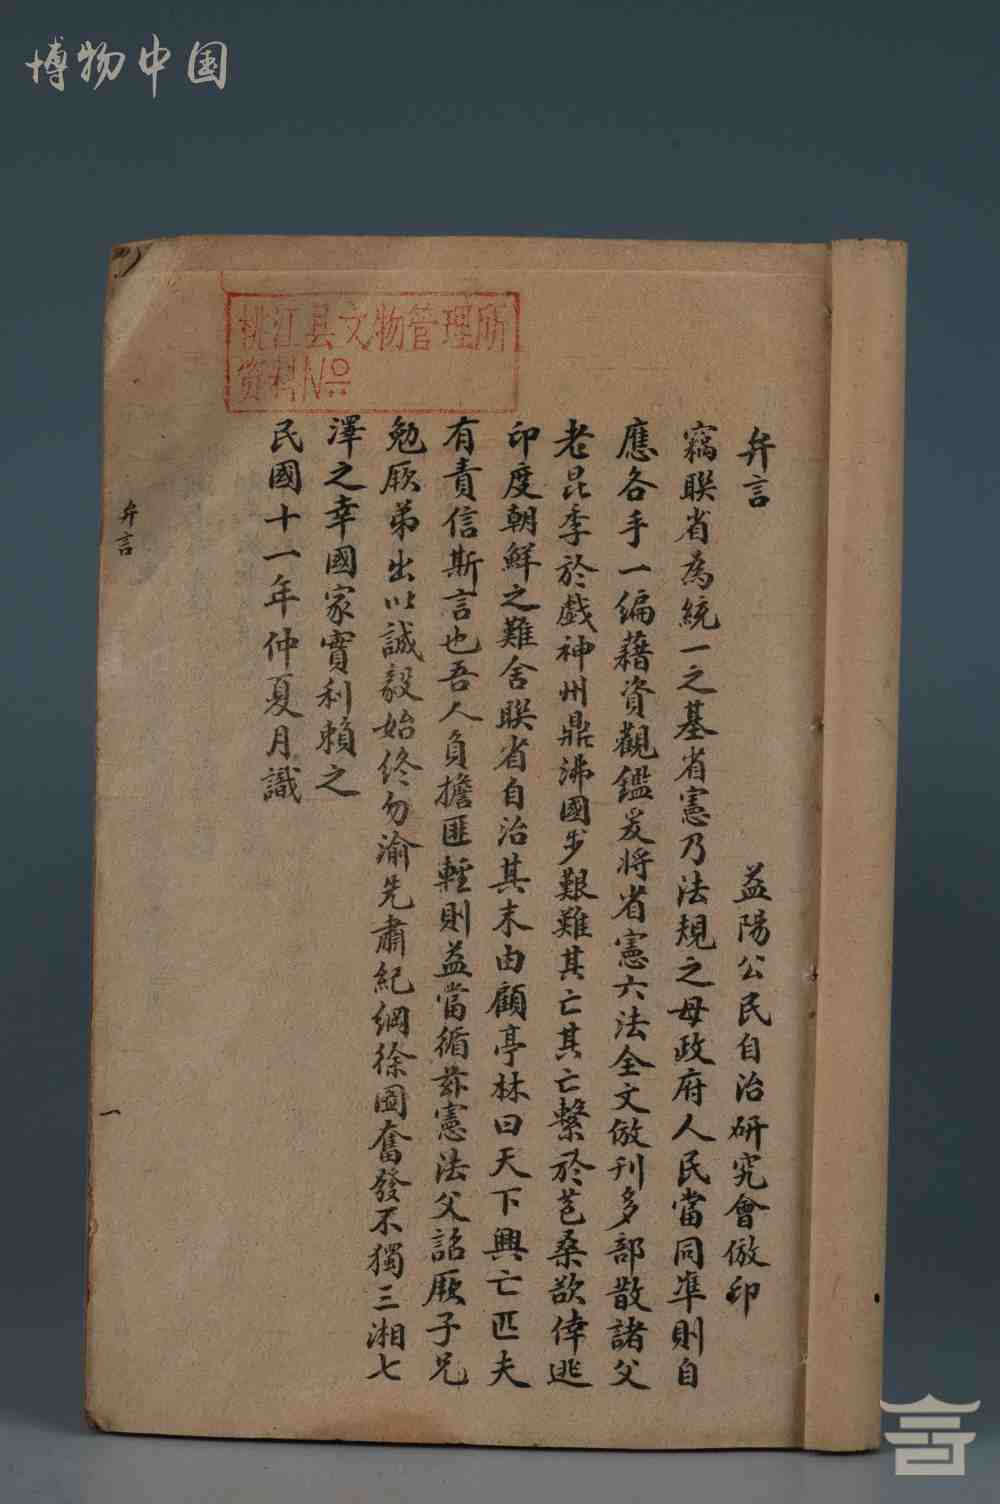 博物中国
桃江县文物管理所
资料No
弁言
益陽公民自治研究會倣印
竊聯省為統一之基省憲乃法規之母政府人民當同準則自
應各手一編藉資觀鑑爰將省憲六法全文倣刊多部散諸父
老昆季於戲神州鼎沸國步艱難其亡其亡繫於苞桑欲倖逃
印度朝鮮之難舍聯省自治其末由顧亭林曰天下興亡匹夫
有責信斯言也吾人負擔匪輕則益當循茲憲法父詔厥子兄
勉厥弟出以誠毅始終勿渝先肅紀綱徐圖奮發不獨三湘七
澤之幸國家實利賴之
民國十一年仲夏月識
弁言
一